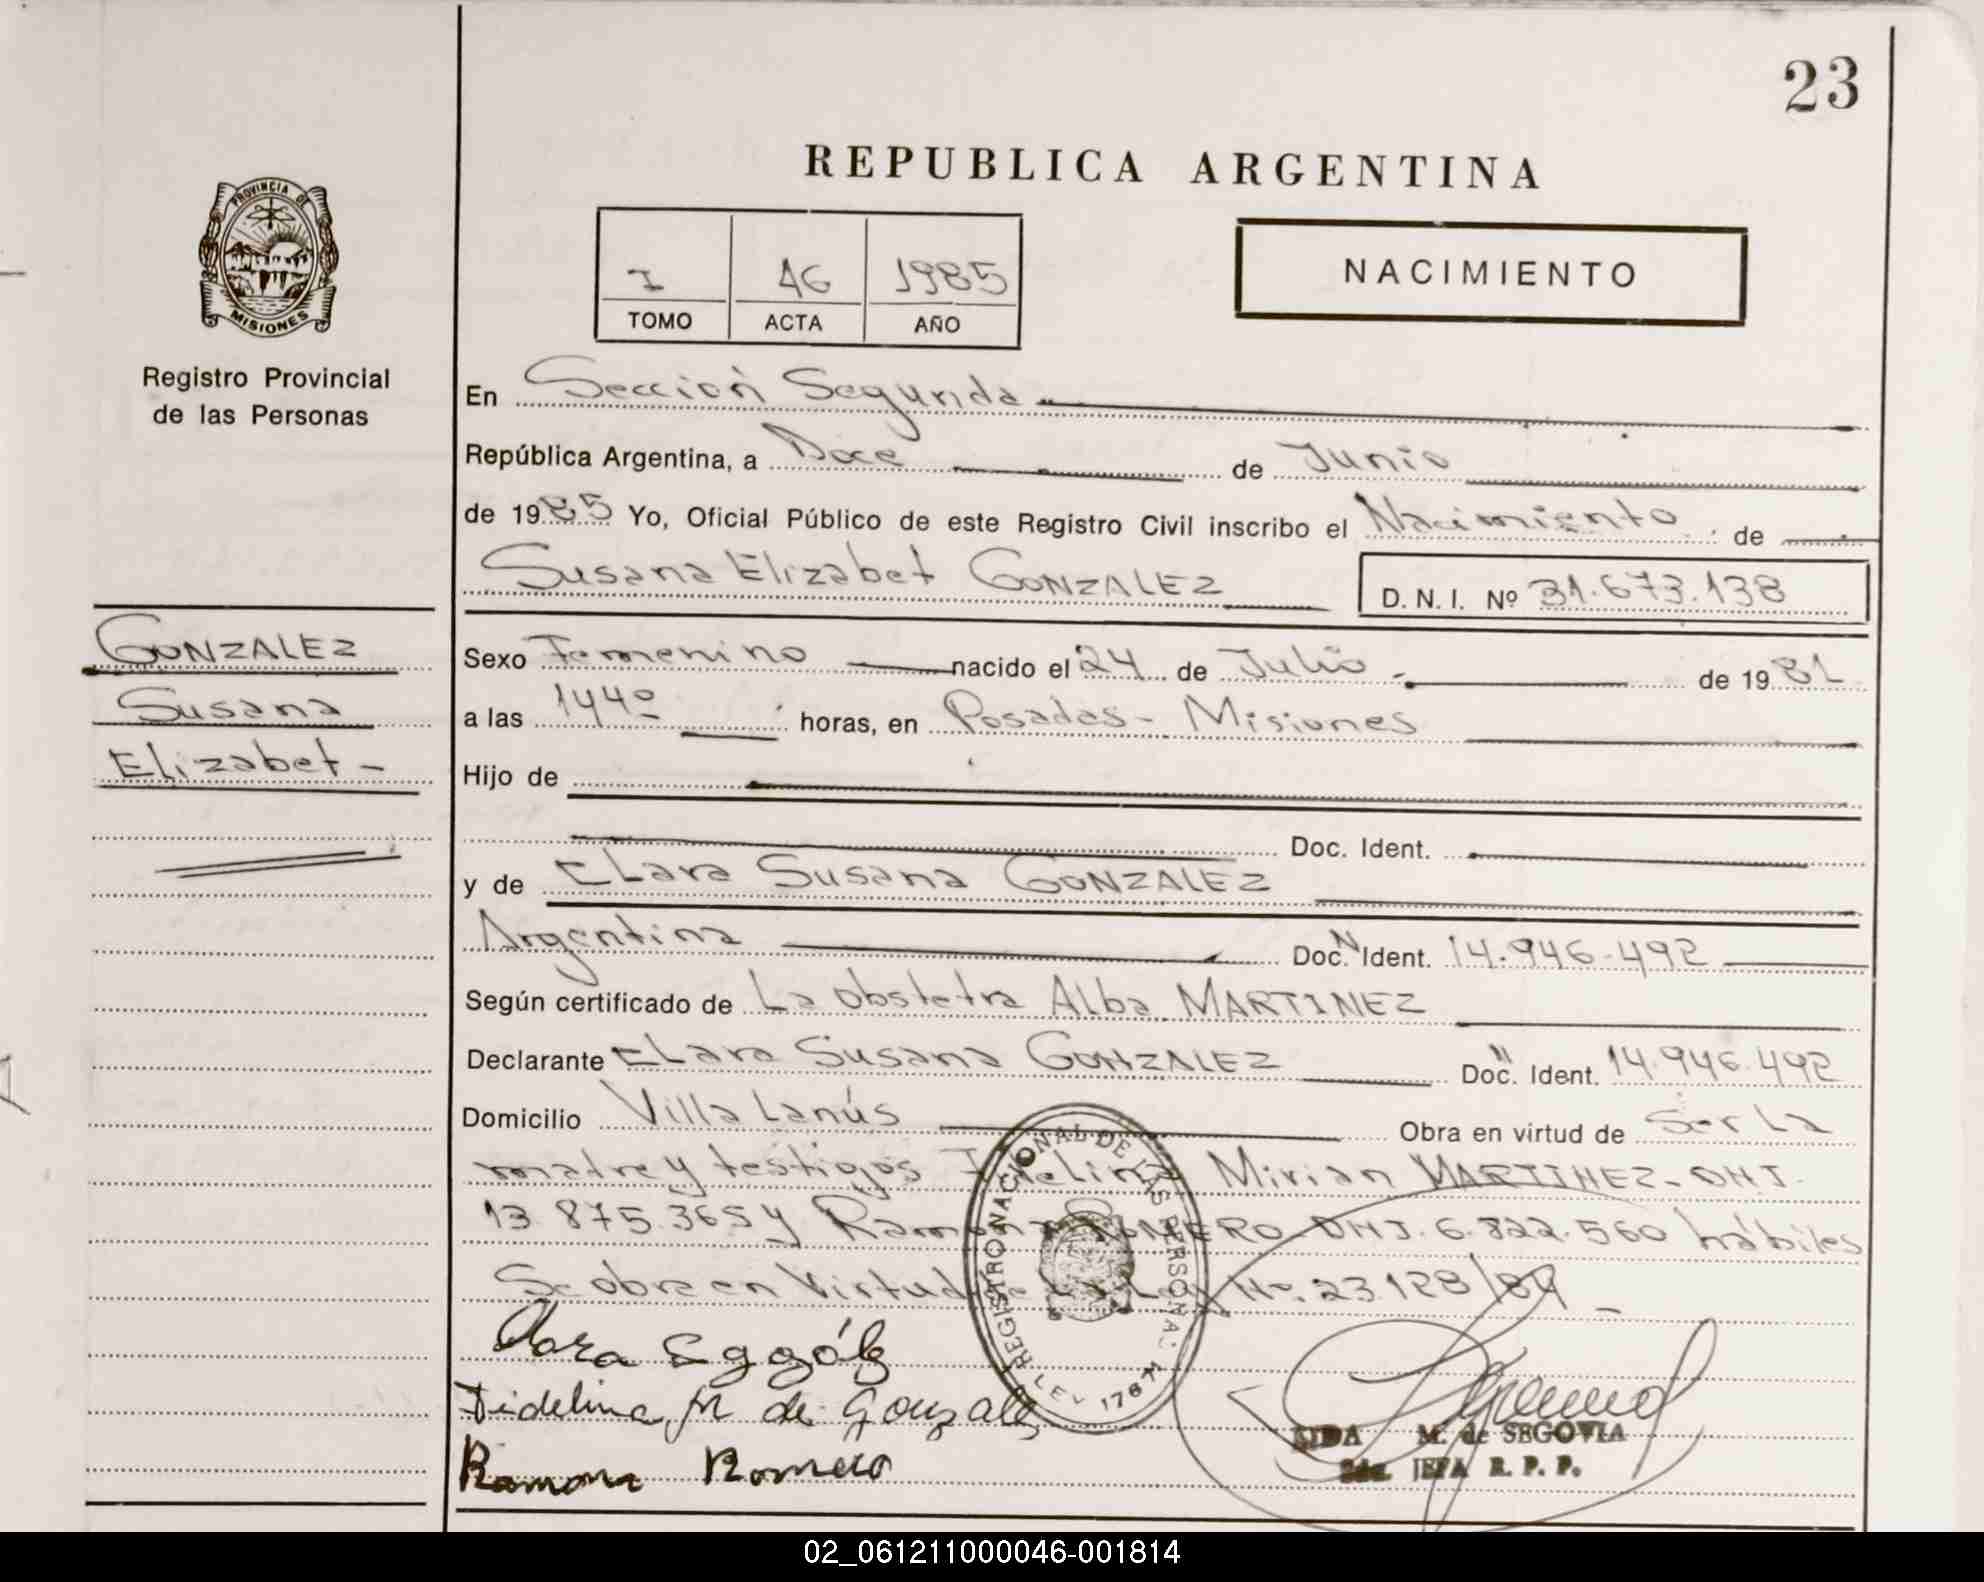 23
REPUBLICA ARGENTINA
PROVINCIA DE
MISIONES
Registro Provincial
de las Personas
I 46 1985
TOMO ACTA AÑO
NACIMIENTO
En Sección Segunda
República Argentina, a Doce de Junio
de 1985 Yo, Oficial Público de este Registro Civil inscribo el Nacimiento de
Susana Elizabet GONZALEZ D. N. I. Nº 31.673.138
GONZALEZ
Susana
Elizabet -
Sexo Femenino nacido el 24 de Julio de 1981
a las 1440 horas, en Posadas - Misiones
Hijo de
Doc. Ident.
y de Clara Susana GONZALEZ
Argentina Doc. N Ident. 14.946.492
Según certificado de La obstetra Alba MARTINEZ
Declarante Clara Susana GONZALEZ Doc. " Ident. 14.946.492
Domicilio Villa Lanús Obra en virtud de Ser la
madre y testigos Fidelina Mirian MARTINEZ - DNI.
13.875.365 y Ramona ROMERO DNI. 6.822.560 hábiles
Se obra en Virtud de la Ley Nº. 23.128/84 -
REGISTRO NACIONAL DE LAS PERSONAS
LEY 17671
Clara
Fidelina M de Gonzalez
Ramona Romero
M. de SEGOVIA
JEFA R. P. P.
02_061211000046-001814